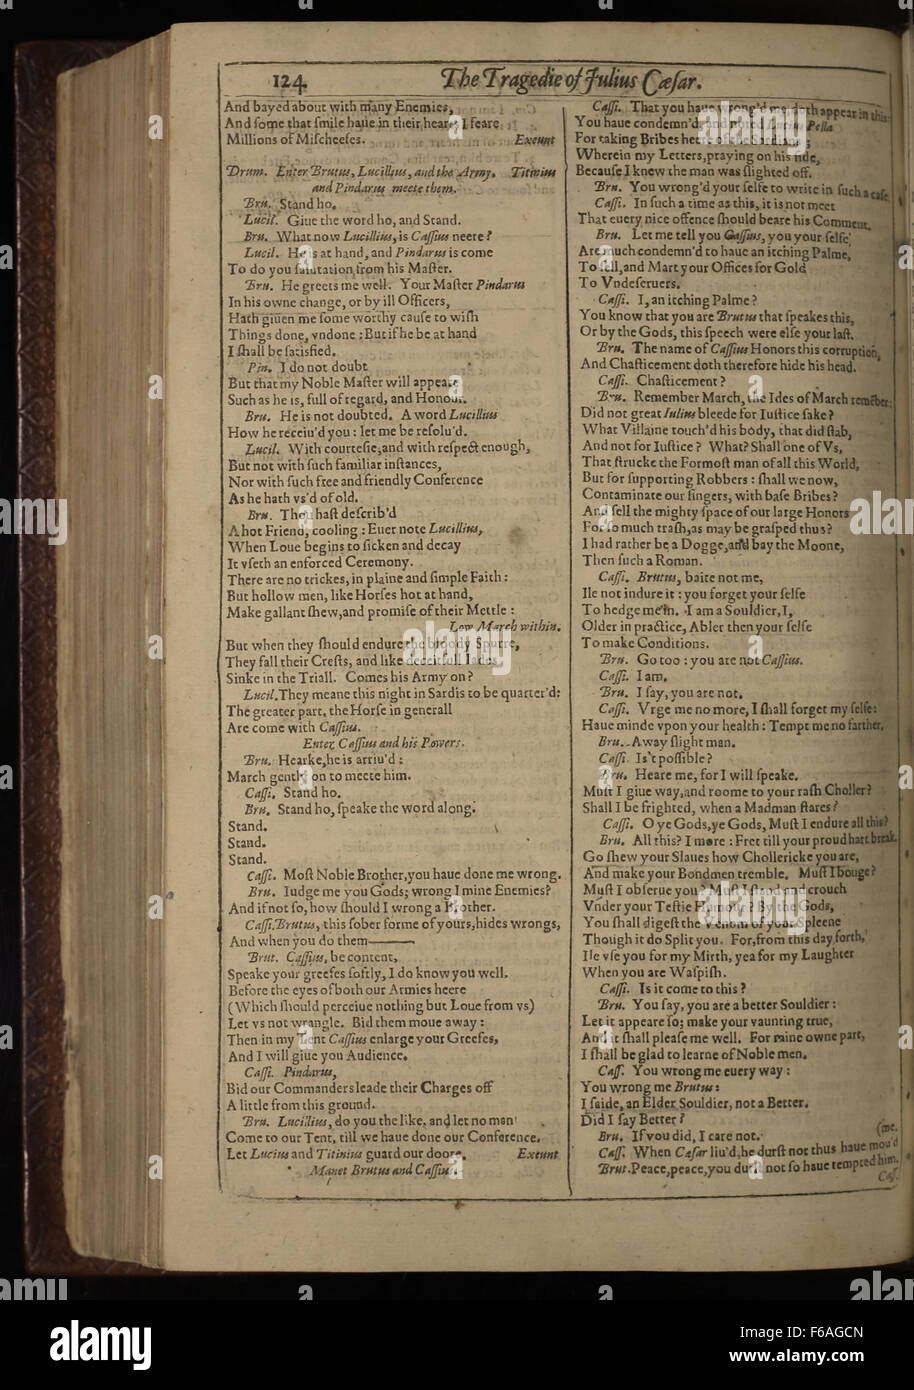 124.
The Tragedie of Julius Cæſar.
And bayed about with many Enemies,
And ſome that ſmile haue in their hearts I feare
Millions of Miſcheeſes. Exeunt
Drum. Enter Brutus, Lucillius, and the Army. Titinius
and Pindarus meete them.
Bru. Stand ho.
Lucil. Giue the word ho, and Stand.
Bru. What now Lucillius, is Caſſius neere?
Lucil. He is at hand, and Pindarus is come
To do you ſalutation from his Maſter.
Bru. He greets me well. Your Maſter Pindarus
In his owne change, or by ill Officers,
Hath giuen me ſome worthy cauſe to wiſh
Things done, vndone : But if he be at hand
I ſhall be ſatisfied.
Pin. I do not doubt
But that my Noble Maſter will appeare
Such as he is, full of regard, and Honour.
Bru. He is not doubted. A word Lucillius
How he receiu'd you : let me be reſolu'd.
Lucil. With courteſie, and with reſpect enough,
But not with ſuch familiar inſtances,
Nor with ſuch free and friendly Conference
As he hath vs'd of old.
Bru. Thou haſt deſcrib'd
A hot Friend, cooling : Euer note Lucillius,
When Loue begins to ſicken and decay
It vſeth an enforced Ceremony.
There are no trickes, in plaine and ſimple Faith :
But hollow men, like Horſes hot at hand,
Make gallant ſhew, and promiſe of their Mettle :
Low March within.
But when they ſhould endure the bloody Spurre,
They fall their Creſts, and like deceitfull Iades
Sinke in the Triall. Comes his Army on?
Lucil. They meane this night in Sardis to be quarter'd:
The greater part, the Horſe in generall
Are come with Caſſius.
Enter Caſſius and his Powers.
Bru. Hearke, he is arriu'd :
March gently on to meete him.
Caſſi. Stand ho.
Bru. Stand ho, ſpeake the word along.
Stand.
Stand.
Stand.
Caſſi. Moſt Noble Brother, you haue done me wrong.
Bru. Iudge me you Gods; wrong I mine Enemies?
And if not ſo, how ſhould I wrong a Brother.
Caſſi. Brutus, this ſober forme of yours, hides wrongs,
And when you do them———.
Brut. Caſſius, be content,
Speake your greefes ſoftly, I do know you well.
Before the eyes of both our Armies heere
(Which ſhould perceiue nothing but Loue from vs)
Let vs not wrangle. Bid them moue away :
Then in my Tent Caſſius enlarge your Greefes,
And I will giue you Audience.
Caſſi. Pindarus,
Bid our Commanders leade their Charges off
A little from this ground.
Bru. Lucillius, do you the like, and let no man
Come to our Tent, till we haue done our Conference.
Let Lucius and Titinius guard our doore. Exeunt
Manet Brutus and Caſſius.
Caſſi. That you haue wrong'd me, doth appear in this:
You haue condemn'd, and noted Lucius Pella
For taking Bribes heere of the Sardians;
Wherein my Letters, praying on his ſide,
Becauſe I knew the man was ſlighted off.
Bru. You wrong'd your ſelfe to write in ſuch a caſe.
Caſſi. In ſuch a time as this, it is not meet
That euery nice offence ſhould beare his Comment.
Bru. Let me tell you Caſſius, you your ſelfe
Are much condemn'd to haue an itching Palme,
To ſell, and Mart your Offices for Gold
To Vndeſeruers.
Caſſi. I, an itching Palme?
You know that you are Brutus that ſpeakes this,
Or by the Gods, this ſpeech were elſe your laſt.
Bru. The name of Caſſius Honors this corruption,
And Chaſticement doth therefore hide his head.
Caſſi. Chaſticement?
Bru. Remember March, the Ides of March remẽber:
Did not great Iulius bleede for Iuſtice ſake?
What Villaine touch'd his body, that did ſtab,
And not for Iuſtice? What? Shall one of Vs,
That ſtrucke the Formoſt man of all this World,
But for ſupporting Robbers : ſhall we now,
Contaminate our fingers, with baſe Bribes?
And ſell the mighty ſpace of our large Honors
For ſo much traſh, as may be graſped thus?
I had rather be a Dogge, and bay the Moone,
Then ſuch a Roman.
Caſſi. Brutus, baite not me,
Ile not indure it : you forget your ſelfe
To hedge me in. I am a Souldier, I,
Older in practice, Abler then your ſelfe
To make Conditions.
Bru. Go too : you are not Caſſius.
Caſſi. I am.
Bru. I ſay, you are not.
Caſſi. Vrge me no more, I ſhall forget my ſelfe:
Haue minde vpon your health : Tempt me no farther.
Bru. Away ſlight man.
Caſſi. Is't poſſible?
Bru. Heare me, for I will ſpeake.
Muſt I giue way, and roome to your raſh Choller?
Shall I be frighted, when a Madman ſtares?
Caſſi. O ye Gods, ye Gods, Muſt I endure all this?
Bru. All this? I more : Fret till your proud hart break.
Go ſhew your Slaues how Chollericke you are,
And make your Bondmen tremble. Muſt I bouge?
Muſt I obſerue you? Muſt I ſtand and crouch
Vnder your Teſtie Humour? By the Gods,
You ſhall digeſt the Venom of your Spleene
Though it do Split you. For, from this day forth,
Ile vſe you for my Mirth, yea for my Laughter
When you are Waſpiſh.
Caſſi. Is it come to this?
Bru. You ſay, you are a better Souldier :
Let it appeare ſo; make your vaunting true,
And it ſhall pleaſe me well. For mine owne part,
I ſhall be glad to learne of Noble men.
Caſſ. You wrong me euery way :
You wrong me Brutus :
I ſaide, an Elder Souldier, not a Better.
Did I ſay Better?
Bru. If you did, I care not. (me.
Caſſ. When Cæſar liu'd, he durſt not thus haue mou'd
Brut. Peace, peace, you durſt not ſo haue tempted him.
Caſ.
alamy
Image ID: F6AGCN
www.alamy.com